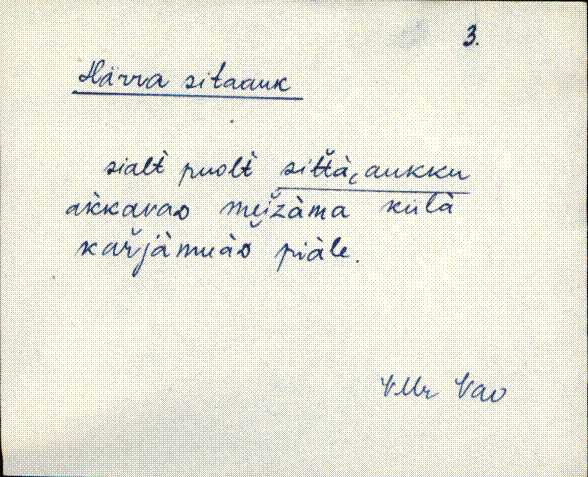 3.
Härra sitaauk
sialt̀ puolt̀ sit̆t̆à, aukku
ak̀kavas mei̬žàma külà
kar̆jàmuàs̆ piàle.
VMr Vao